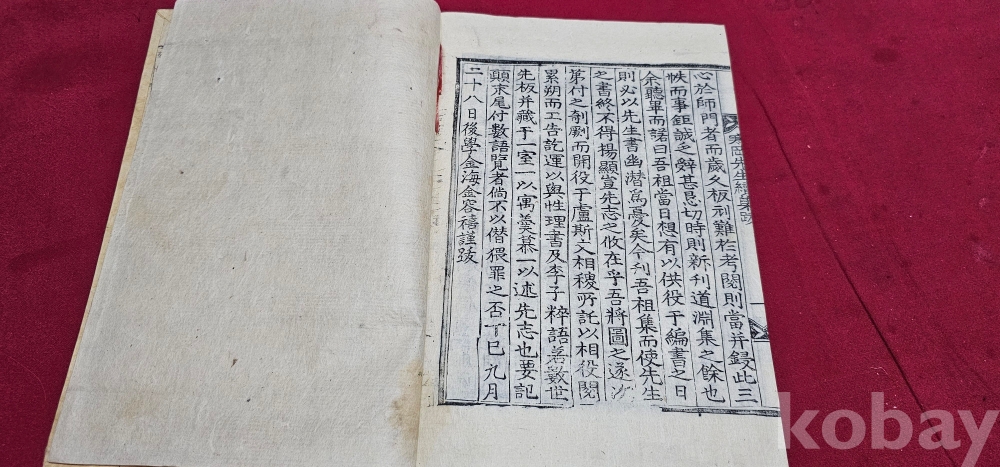 心於師門者而歲久板刓難於考閱則當并鋟此三
帙而事鉅誠乏辭甚悬切時則新刊道淵集之餘也
余聽畢而諾曰吾祖當日想有以供役于編書之日
則必以先生書幽潜爲憂矣今刊吾祖集而使先生
之書終不得揚顯豈先志之攸在乎吾將圖之遂
第付之剞劂而開役于盧斯文相稷所託以相役閱
累朔而工告訖運以與性理書及李子粹語爲數世
先板并藏于一室一以寓羹慕一以述先志也要記
顚末尾付數語覽者倘不以僭猥罪之否丁巳九月
二十八日後學金海金容禧謹跋
寒岡先生續集跋
一
kobay